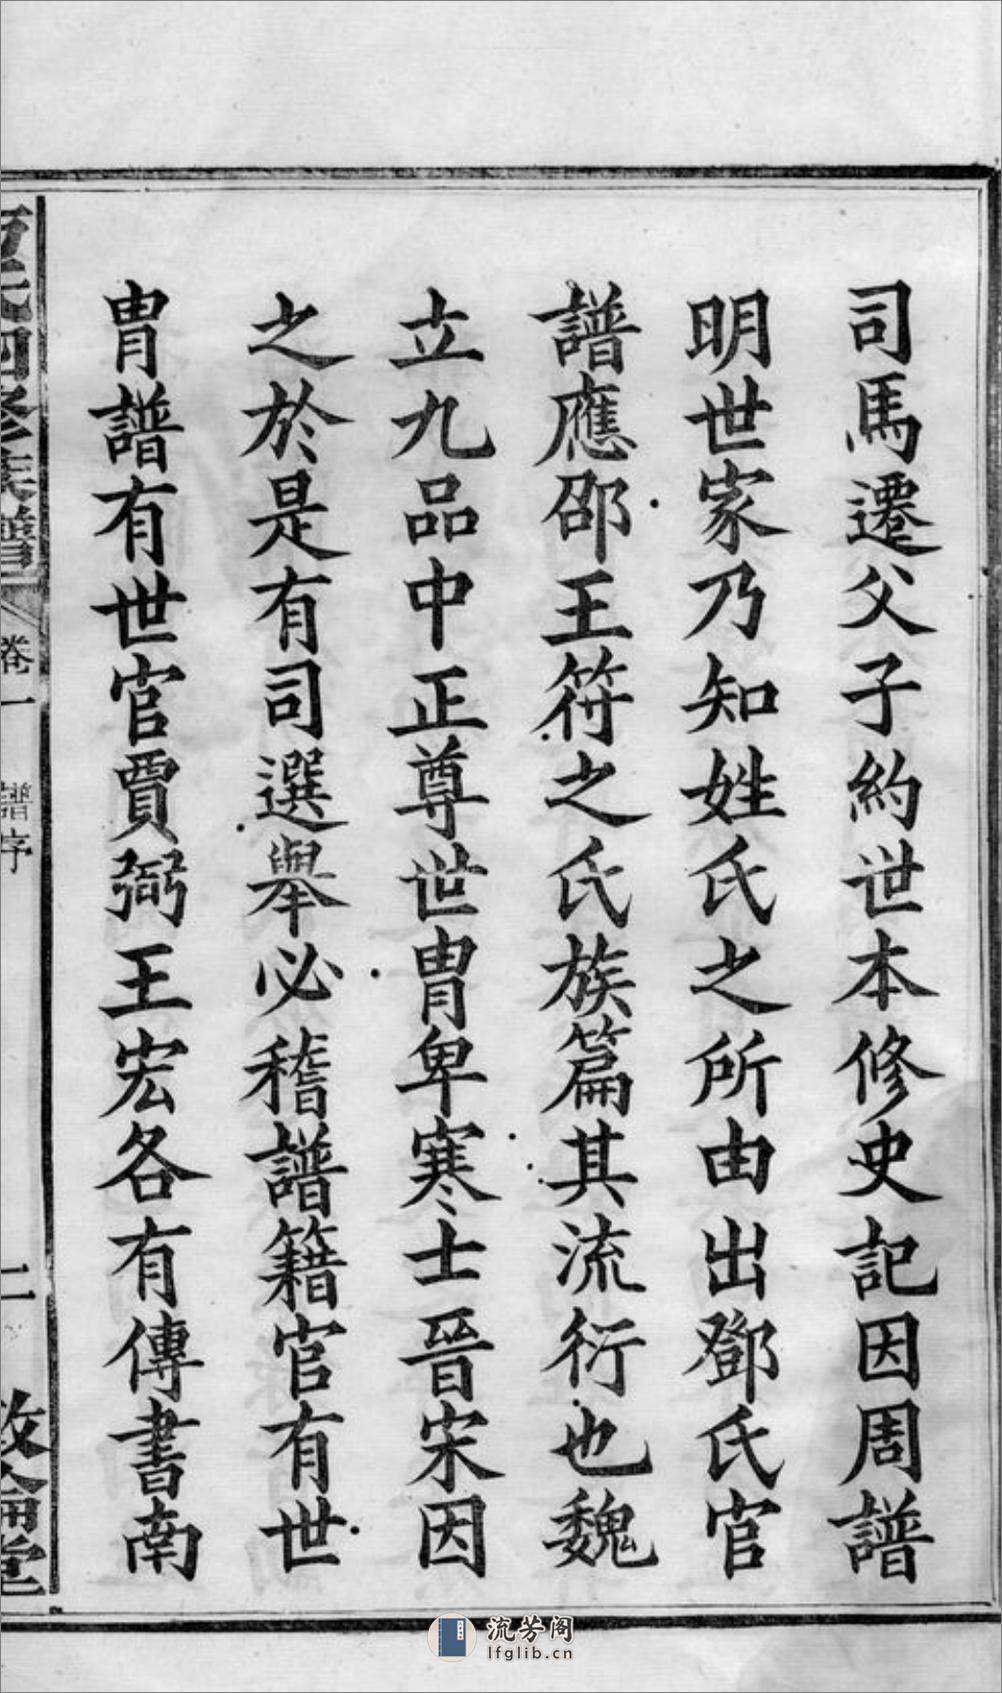 司馬遷父子約世本修史記因周譜
明世家乃知姓氏之所由出鄧氏官
譜應邵王符之氏族篇其流衍也魏
立九品中正尊世胄卑寒士晉宋因
之於是有司選舉必稽譜籍官有世
胄譜有世官賈弼王宏各有傳書南
氏四修族譜
卷一
譜序
二
敦倫堂
流芳阁
lfglib.cn